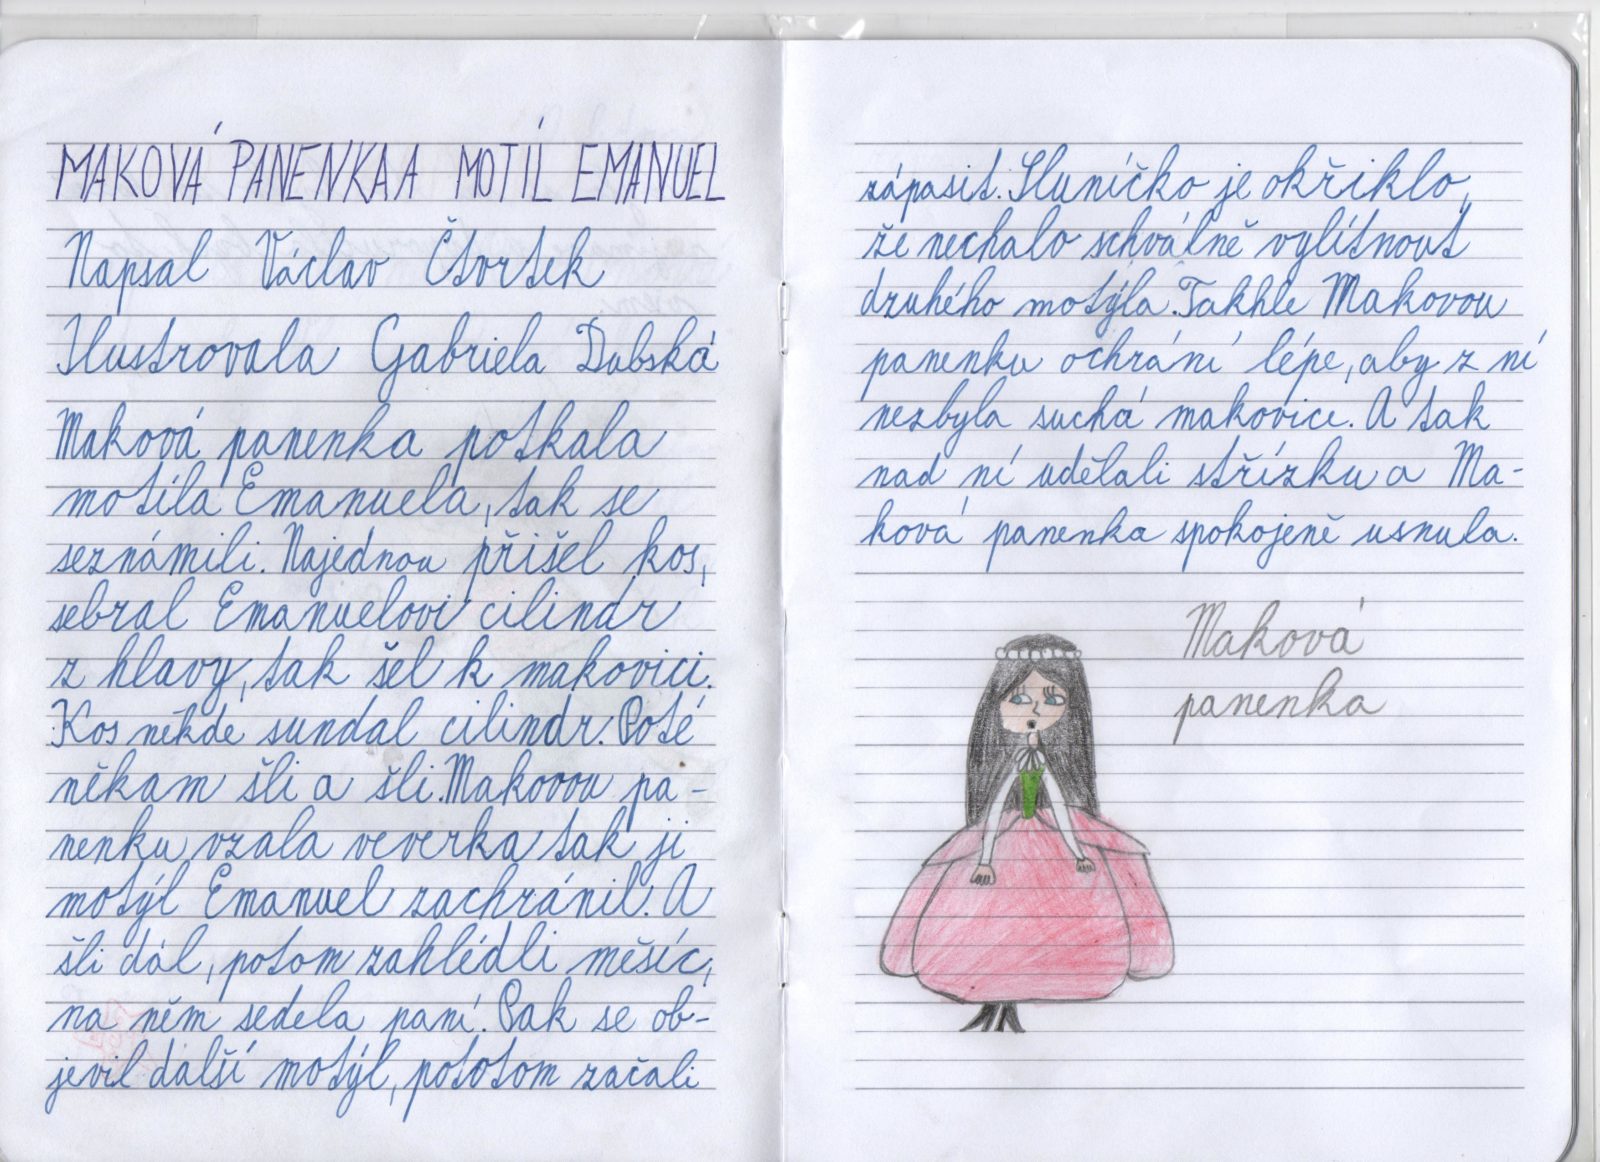 MAKOVÁ PANENKA A MOTÍL EMANUEL
Napsal Václav Čtvrtek
Ilustrovala Gabriela Dubská
Maková panenka potkala
motíla Emanuela, tak se
seznámili. Najednou přišel kos,
sebral Emanuelovi cilindr
z hlavy, tak šel k makovici.
Kos někde sundal cilindr. Poté
někam šli a šli. Makovou pa-
nenku vzala veverka tak ji
motýl Emanuel zachránil. A
šli dál, potom zahlédli měsíc,
na něm sedela paní. Pak se ob-
jevil další motýl, pototom začali
zápasit. Sluníčko je okřiklo,
že nechalo schválně vylítnout
druhého motýla. Takhle Makovou
panenku ochrání lépe, aby z ní
nezbyla suchá makovice. A tak
nad ní udělali střízku a Ma-
ková panenka spokojeně usnula.
Maková
panenka